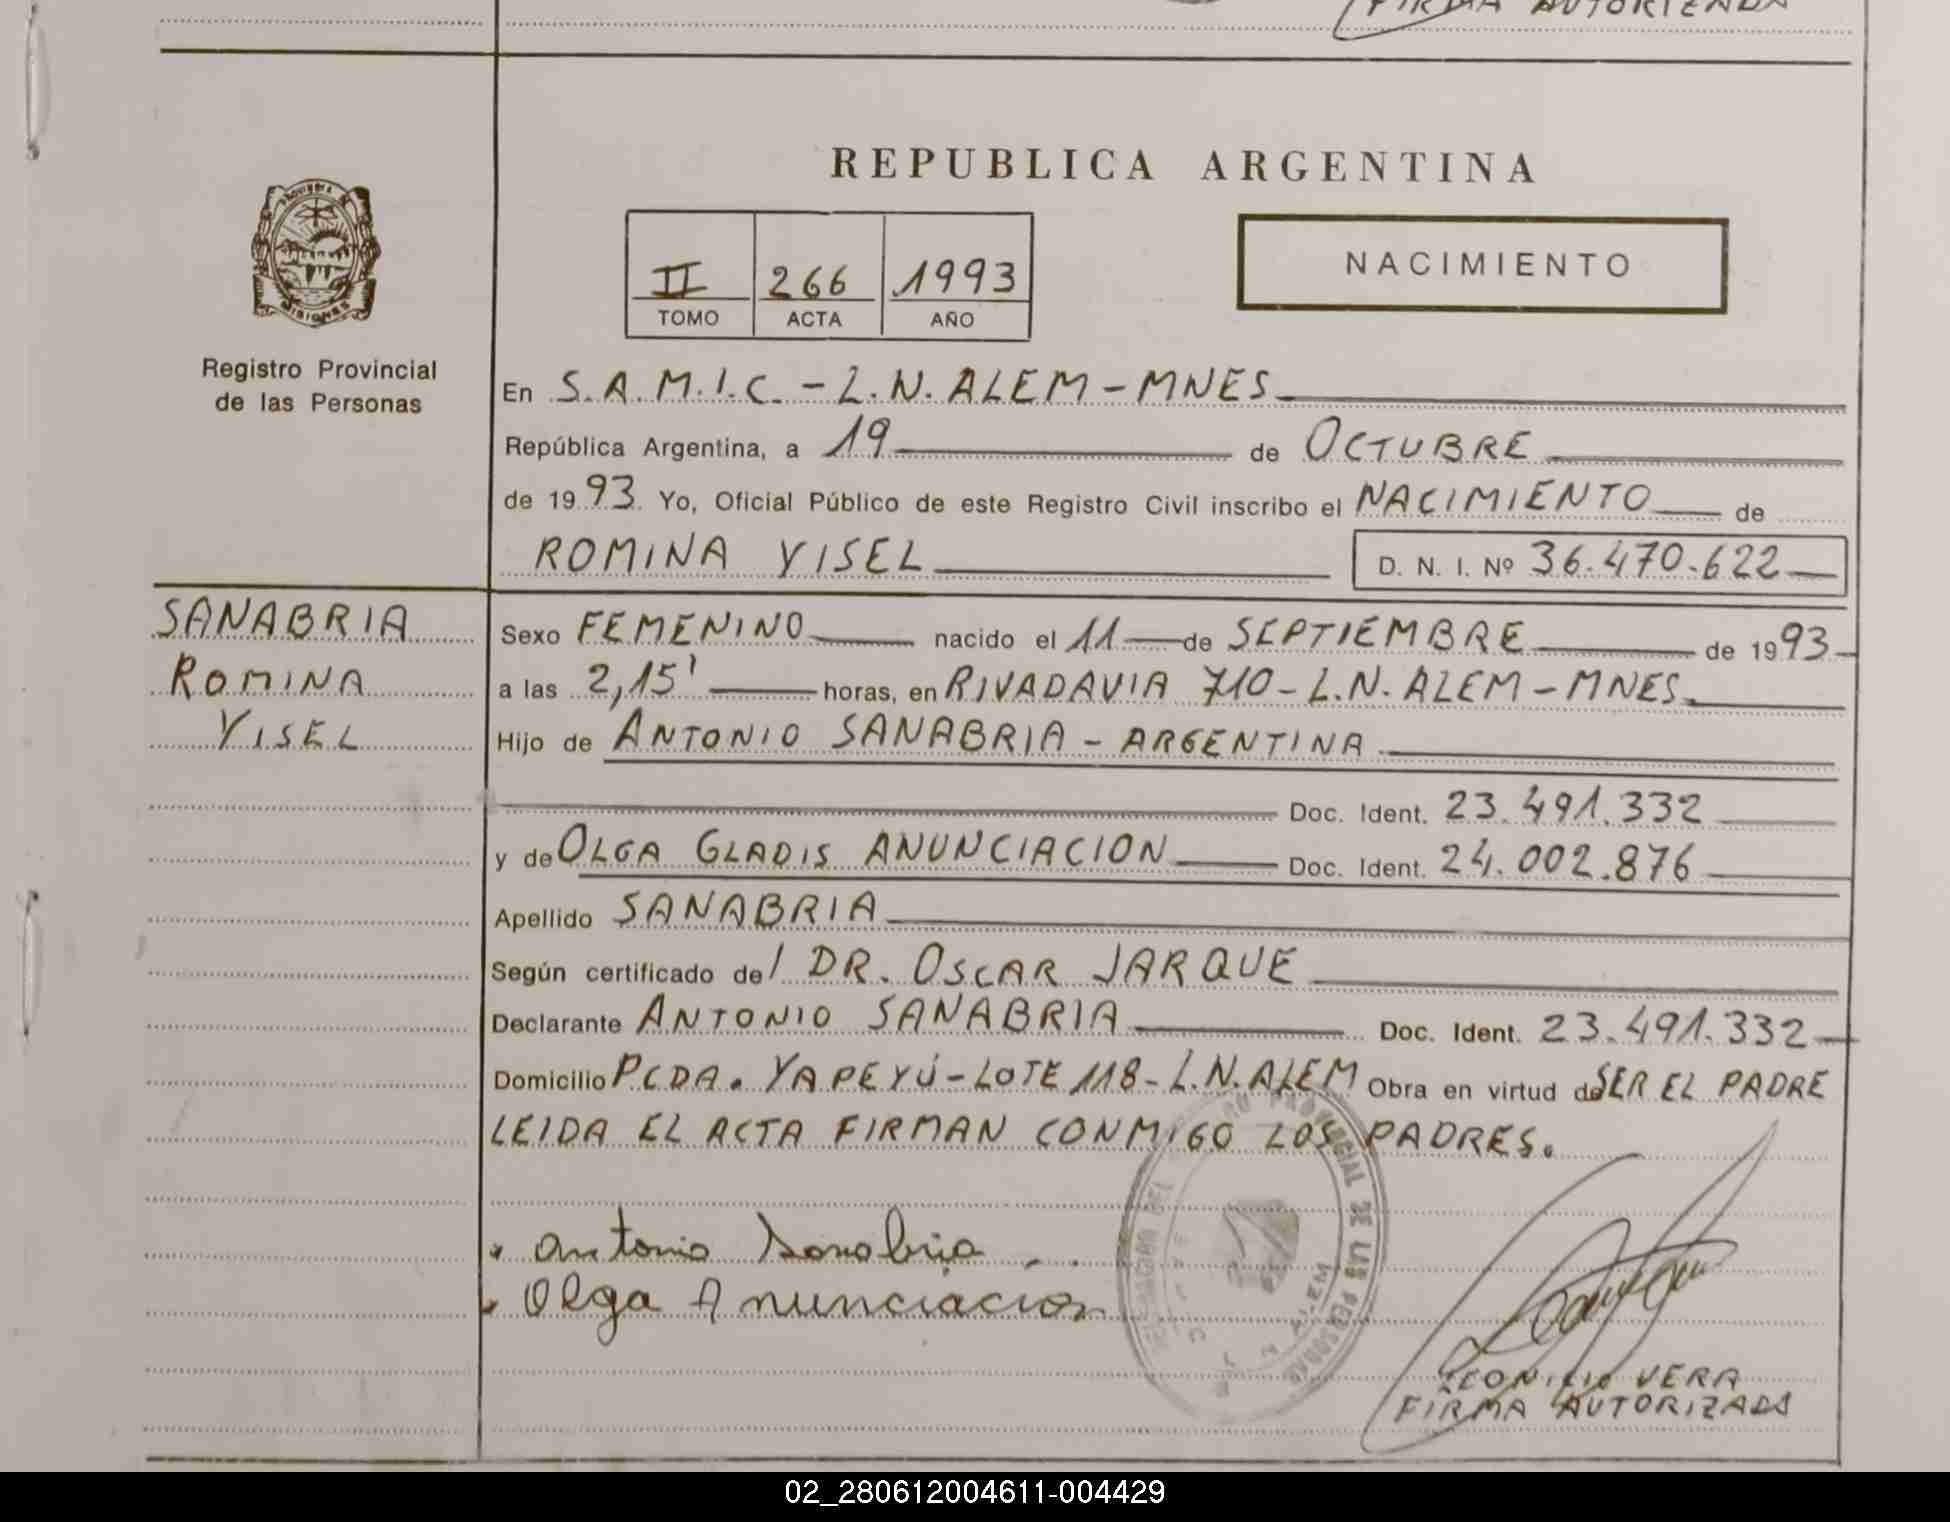 FIRMA AUTORIZADA
REPUBLICA ARGENTINA
II 266 1993
TOMO ACTA AÑO
NACIMIENTO
Registro Provincial
de las Personas
En S.A.M.I.C. - L.N. ALEM - MNES
República Argentina, a 19 de OCTUBRE
de 1993. Yo, Oficial Público de este Registro Civil inscribo el NACIMIENTO de
ROMINA YISEL D. N. I. Nº 36.470.622
SANABRIA
ROMINA
YISEL
Sexo FEMENINO nacido el 11 de SEPTIEMBRE de 1993
a las 2,15' horas, en RIVADAVIA 710 - L.N. ALEM - MNES.
Hijo de ANTONIO SANABRIA - ARGENTINA
Doc. Ident. 23.491.332
y de OLGA GLADIS ANUNCIACION Doc. Ident. 24.002.876
Apellido SANABRIA
Según certificado del DR. OSCAR JARQUE
Declarante ANTONIO SANABRIA Doc. Ident. 23.491.332
Domicilio PCDA. YAPEYÚ - LOTE 118 - L.N. ALEM Obra en virtud de SER EL PADRE
LEIDA EL ACTA FIRMAN CONMIGO LOS PADRES.
Antonio Sanabria
Olga Anunciacion
VERA
FIRMA AUTORIZADA
02_280612004611-004429